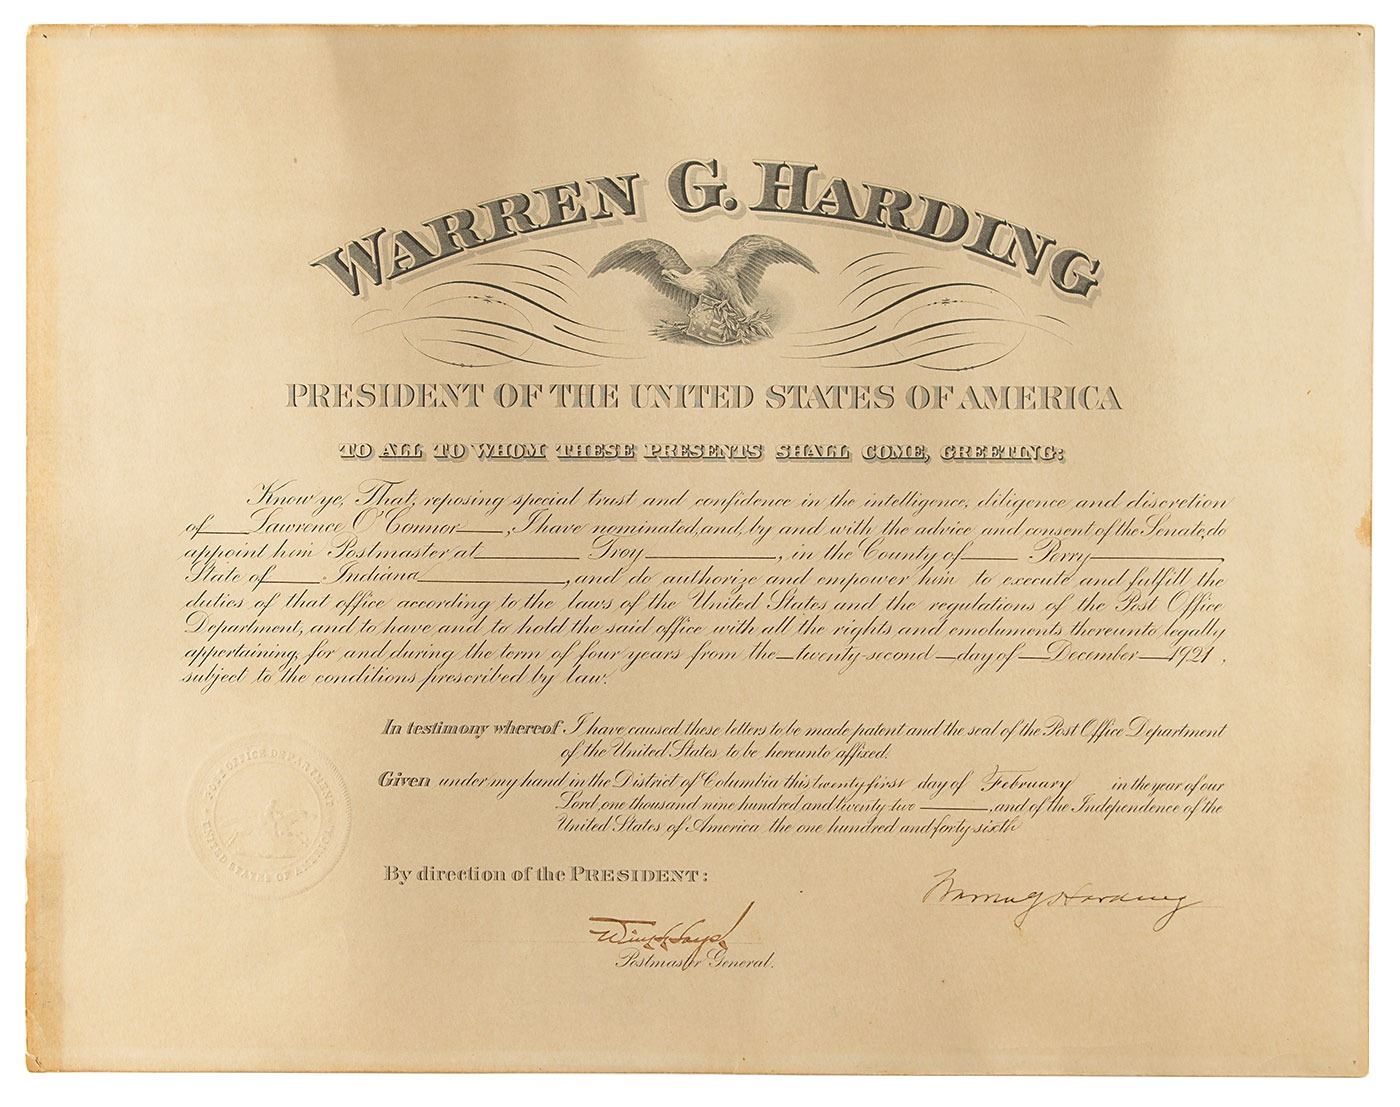 WARREN G. HARDING
PRESIDENT OF THE UNITED STATES OF AMERICA
TO ALL TO WHOM THESE PRESENTS SHALL COME, GREETING:
Know ye, That, reposing special trust and confidence in the intelligence, diligence and discretion
of Lawrence O'Connor, I have nominated, and, by and with the advice and consent of the Senate, do
appoint him Postmaster at Troy, in the County of Perry,
State of Indiana, and do authorize and empower him to execute and fulfill the
duties of that office according to the laws of the United States and the regulations of the Post Office
Department, and to have and to hold the said office with all the rights and emoluments thereunto legally
appertaining, for and during the term of four years from the twenty-second day of December 1921,
subject to the conditions prescribed by law.
In testimony whereof I have caused these letters to be made patent and the seal of the Post Office Department
of the United States to be hereunto affixed.
Given under my hand in the District of Columbia this twenty-first day of February in the year of our
Lord one thousand nine hundred and twenty-two, and of the Independence of the
United States of America the one hundred and forty sixth
POST OFFICE DEPARTMENT
UNITED STATES OF AMERICA
By direction of the PRESIDENT:
Warren G Harding
Will H. Hays
Postmaster General.